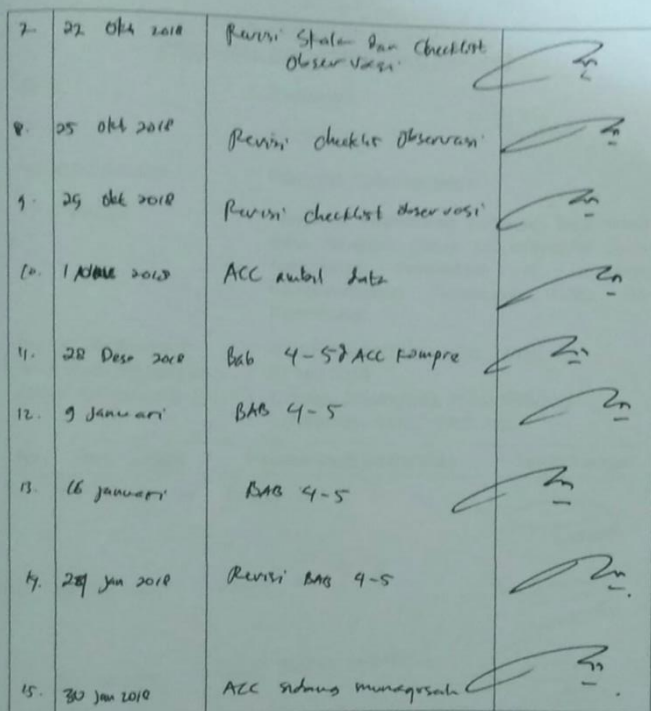 7. 22 Okt 2018 Revisi Skala dan Checklist
Observasi
8. 25 Okt 2018 Revisi checklist Observasi
9. 29 Okt 2018 Revisi checklist observasi
10. 1 2018 ACC ambil data
11. 28 Des 2018 Bab 4-5 & ACC Kompre
12. 9 Januari BAB 4-5
13. 16 Januari BAB 4-5
14. Jan 2018 Revisi BAB 4-5
15. 30 Jan 2018 ACC sidang munaqosah